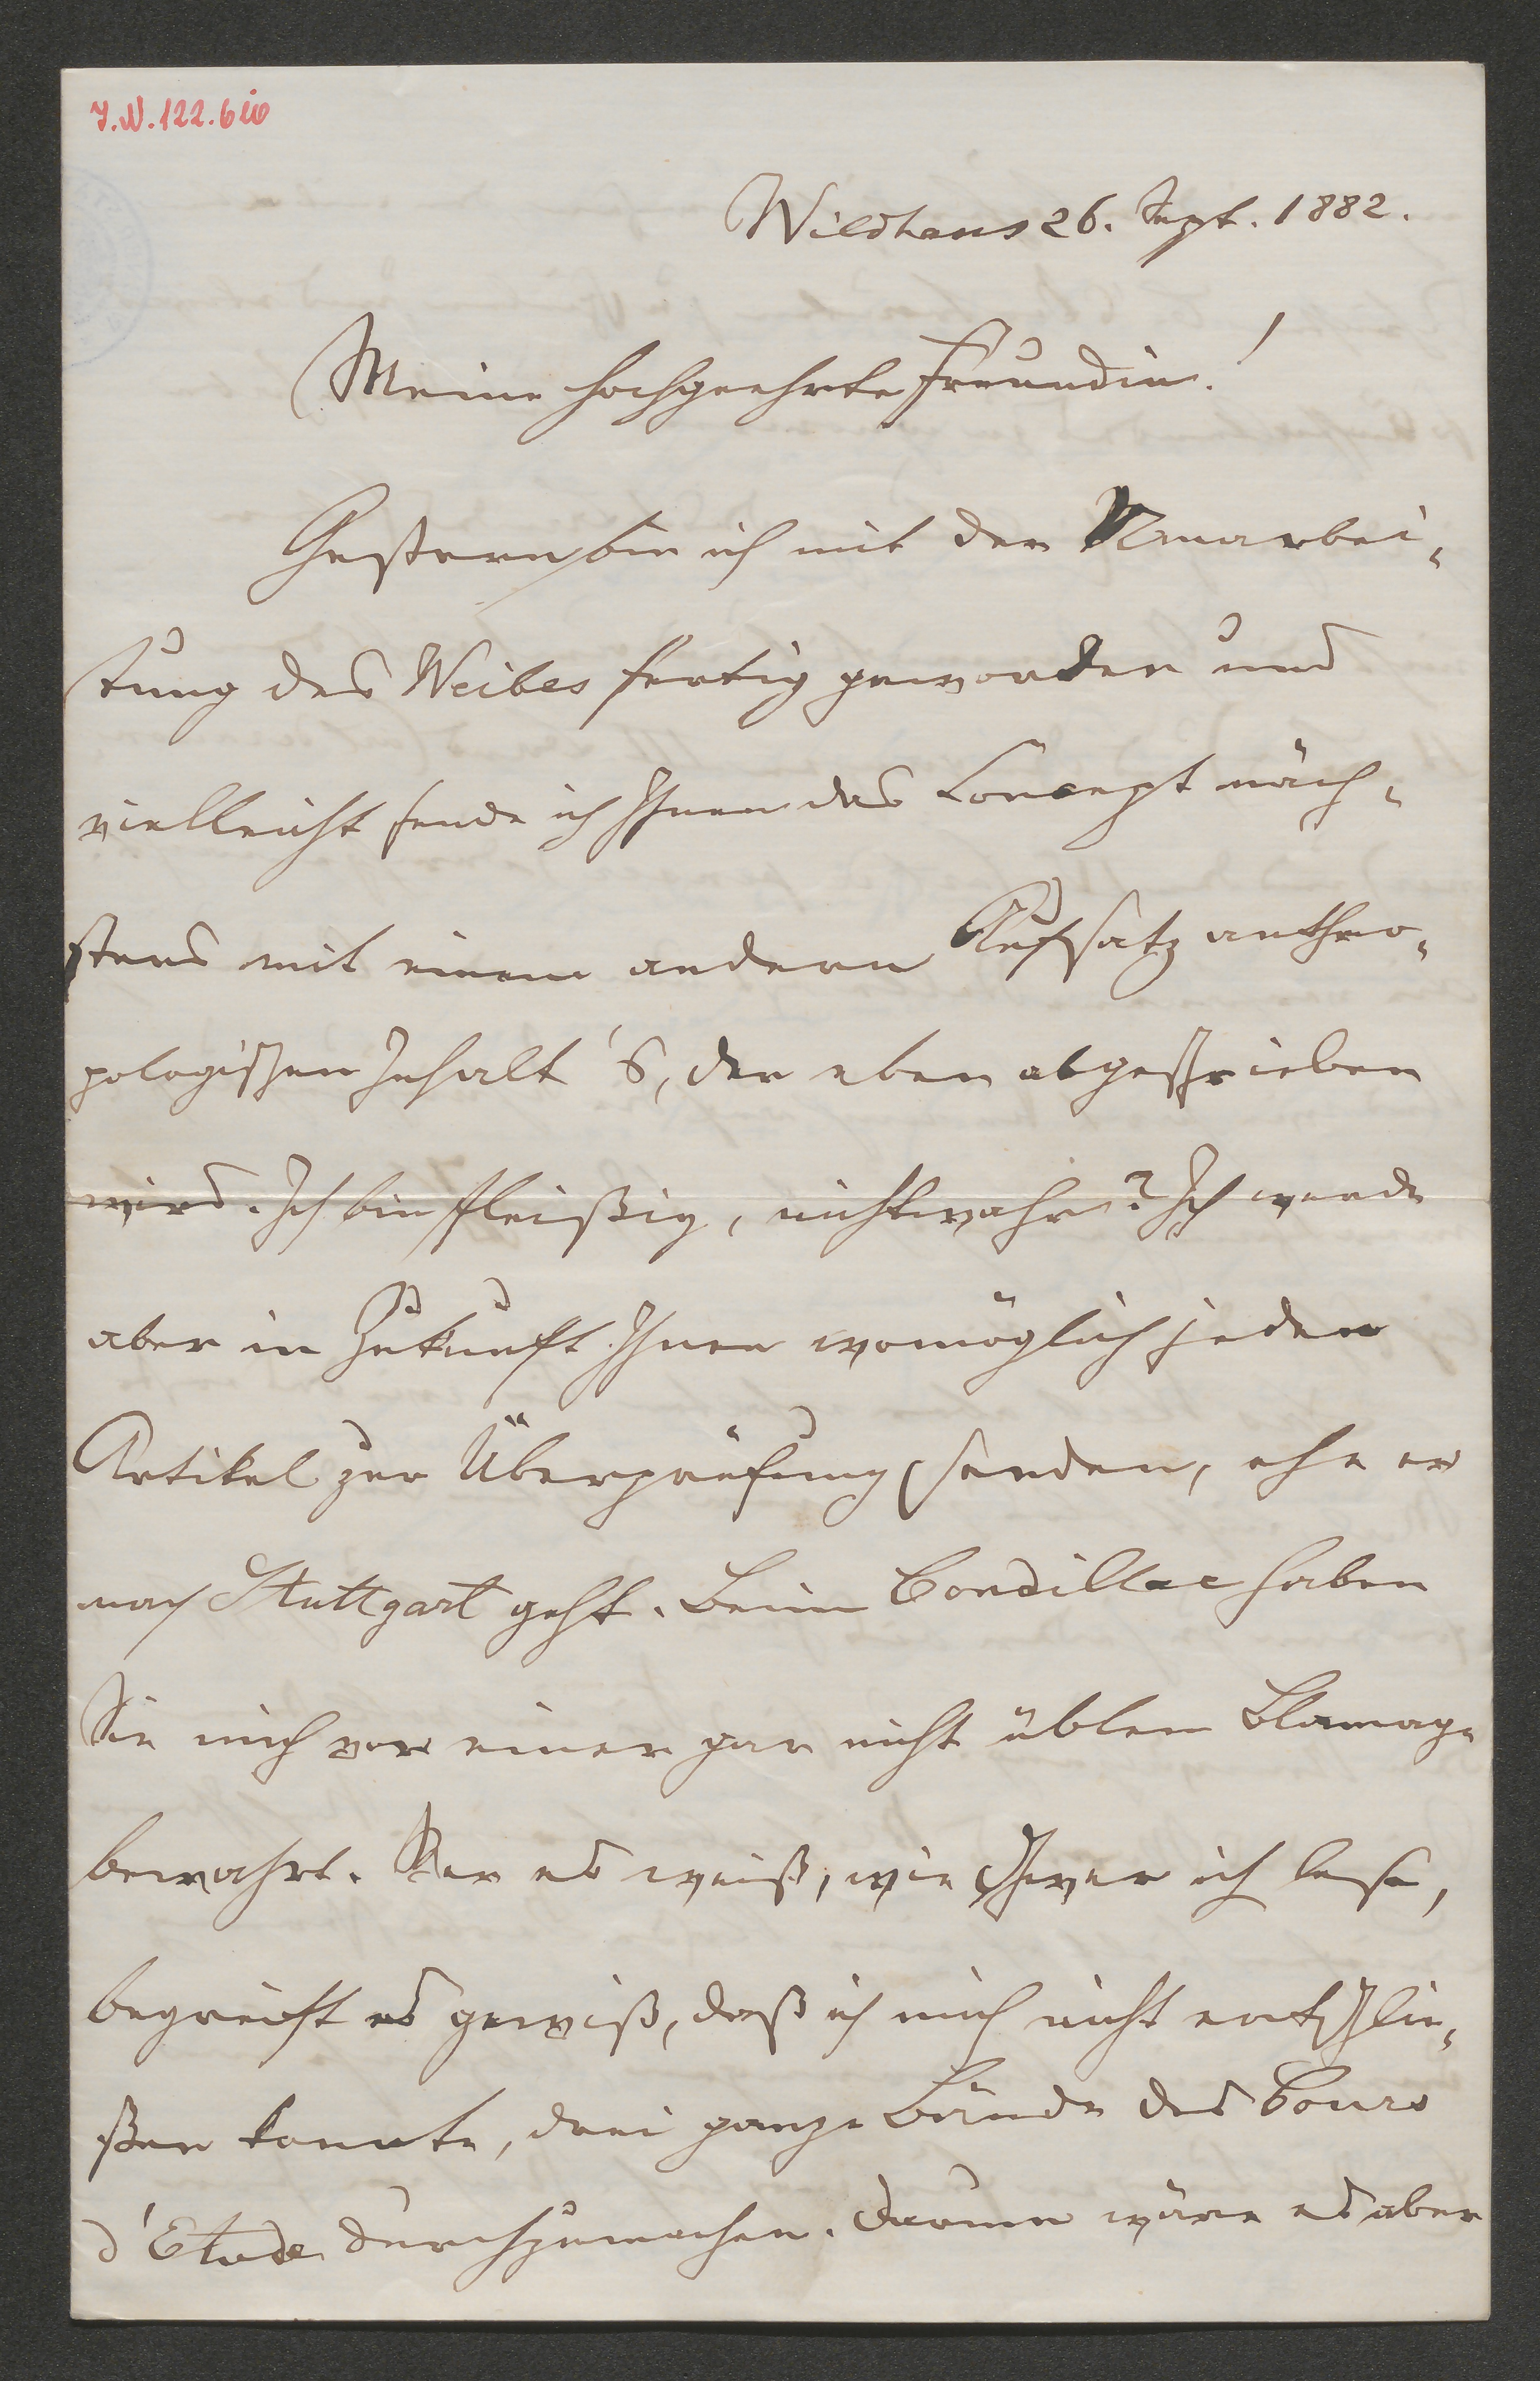 J.N. 122.610
Wildhaus 26. Sept. 1882.
Meine hochgeehrte Freundin!
Gestern bin ich mit der Umarbei-
tung des Weibes fertig geworden und
vielleicht sende ich Ihnen das Concept näch-
stens mit einem andern Aufsatz anthro-
pologischen Inhalt's, der eben abgeschrieben
wird. Ich bin fleißig, nichtwahr? Ich werde
aber in Zukunft Ihnen womöglich jeden
Artikel zur Überprüfung senden, ehe er
nach Stuttgart geht. Beim Condillac haben
Sie mich vor einer gar nicht üblen Blamage
bewahrt. Wer es weiß, wie schwer ich lese,
begreift es gewiß, daß ich mich nicht entschlie-
ßen konnte, drei ganze Bände des Cours
d'Etude durchzumachen. Darum wäre es aber